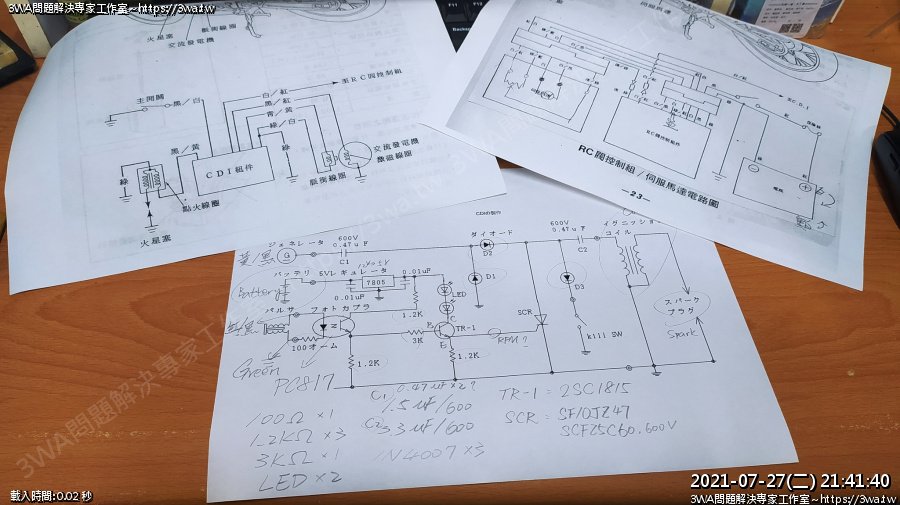 3WA問題解決專家工作室~https://3wa.tw
火星塞
脈衝線圈
交流發電機
伺服馬達
F11
F12
至RC閥控制組
主開關
黑/白
白/紅
黑/紅
青/黃
綠/白
黑/黃
綠
CDI組件
綠
交流發電機
激磁線圈
脈衝線圈
點火線圈
火星塞
至C.D.I
RC閥控制組件
電瓶
RC閥控制組/伺服馬達電路圖
—23—
CDIの製作
ジェネレータ
黃/黑
G
600V
0.47uF
C1
ダイオード
D2
600V
0.47uF
C2
イグニッション
コイル
バッテリ
5Vレギュレータ
Battery
7805
0.01uF
0.01uF
LED
D1
D3
スパーク
プラグ
Spark
パルサ
フォトカプラ
1.2K
B
C
TR-1
E
3K
RFM?
SCR
kill SW
100オーム
Green
1.2K
1.2K
PC817
C1 0.47uF×2?
1.5uF/600
C2 3.3uF/600
TR-1 = 2SC1815
SCR = SF10JZ47
SCF25C60.600V
100Ω×1
1.2KΩ×3
3KΩ×1
LED×2
1N4007×3
3WA問題解決專家工作室~https://3wa.tw
載入時間:0.02 秒
2021-07-27(二) 21:41:40
3WA問題解決專家工作室~https://3wa.tw